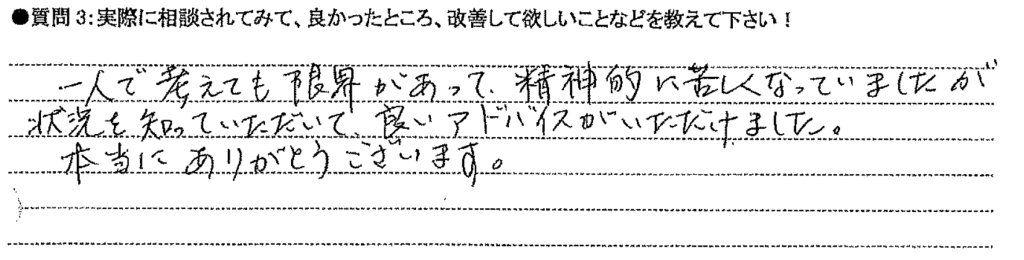 ●質問3:実際に相談されてみて、良かったところ、改善して欲しいことなどを教えて下さい！
一人で考えても限界があって、精神的に苦しくなっていましたが
状況を知っていただいて、良いアドバイスがいただけました。
本当にありがとうございます。